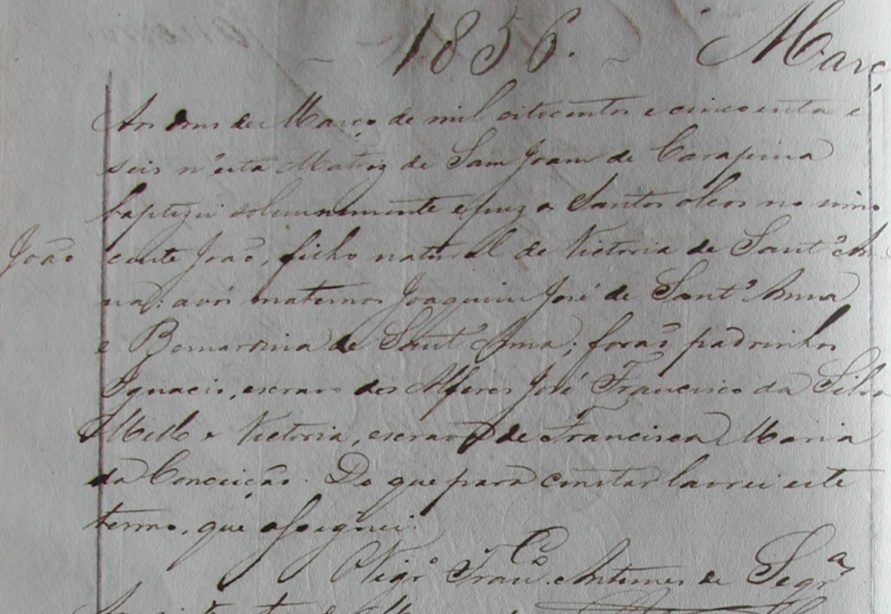 1856. Març
Aos dous de Março de mil oitocentos e cincoenta e
seis n'esta Matriz de Sam Joam de Carapina
baptizei solemnemente e puz os Santos oleos no inno
João cente João, filho natural de Victoria de Sant'An
na: avós maternos Joaquim José de Sant'Anna
e Bernardina de Sant'Anna; forão padrinhos
Ignacio, escravo do Alferes José Francisco da Silva
Mello e Victoria, escrava de Francisca Maria
da Conceição. Do que para constar lavrei este
termo, que assignei.
Vigrº Francº Antunes de Segrª